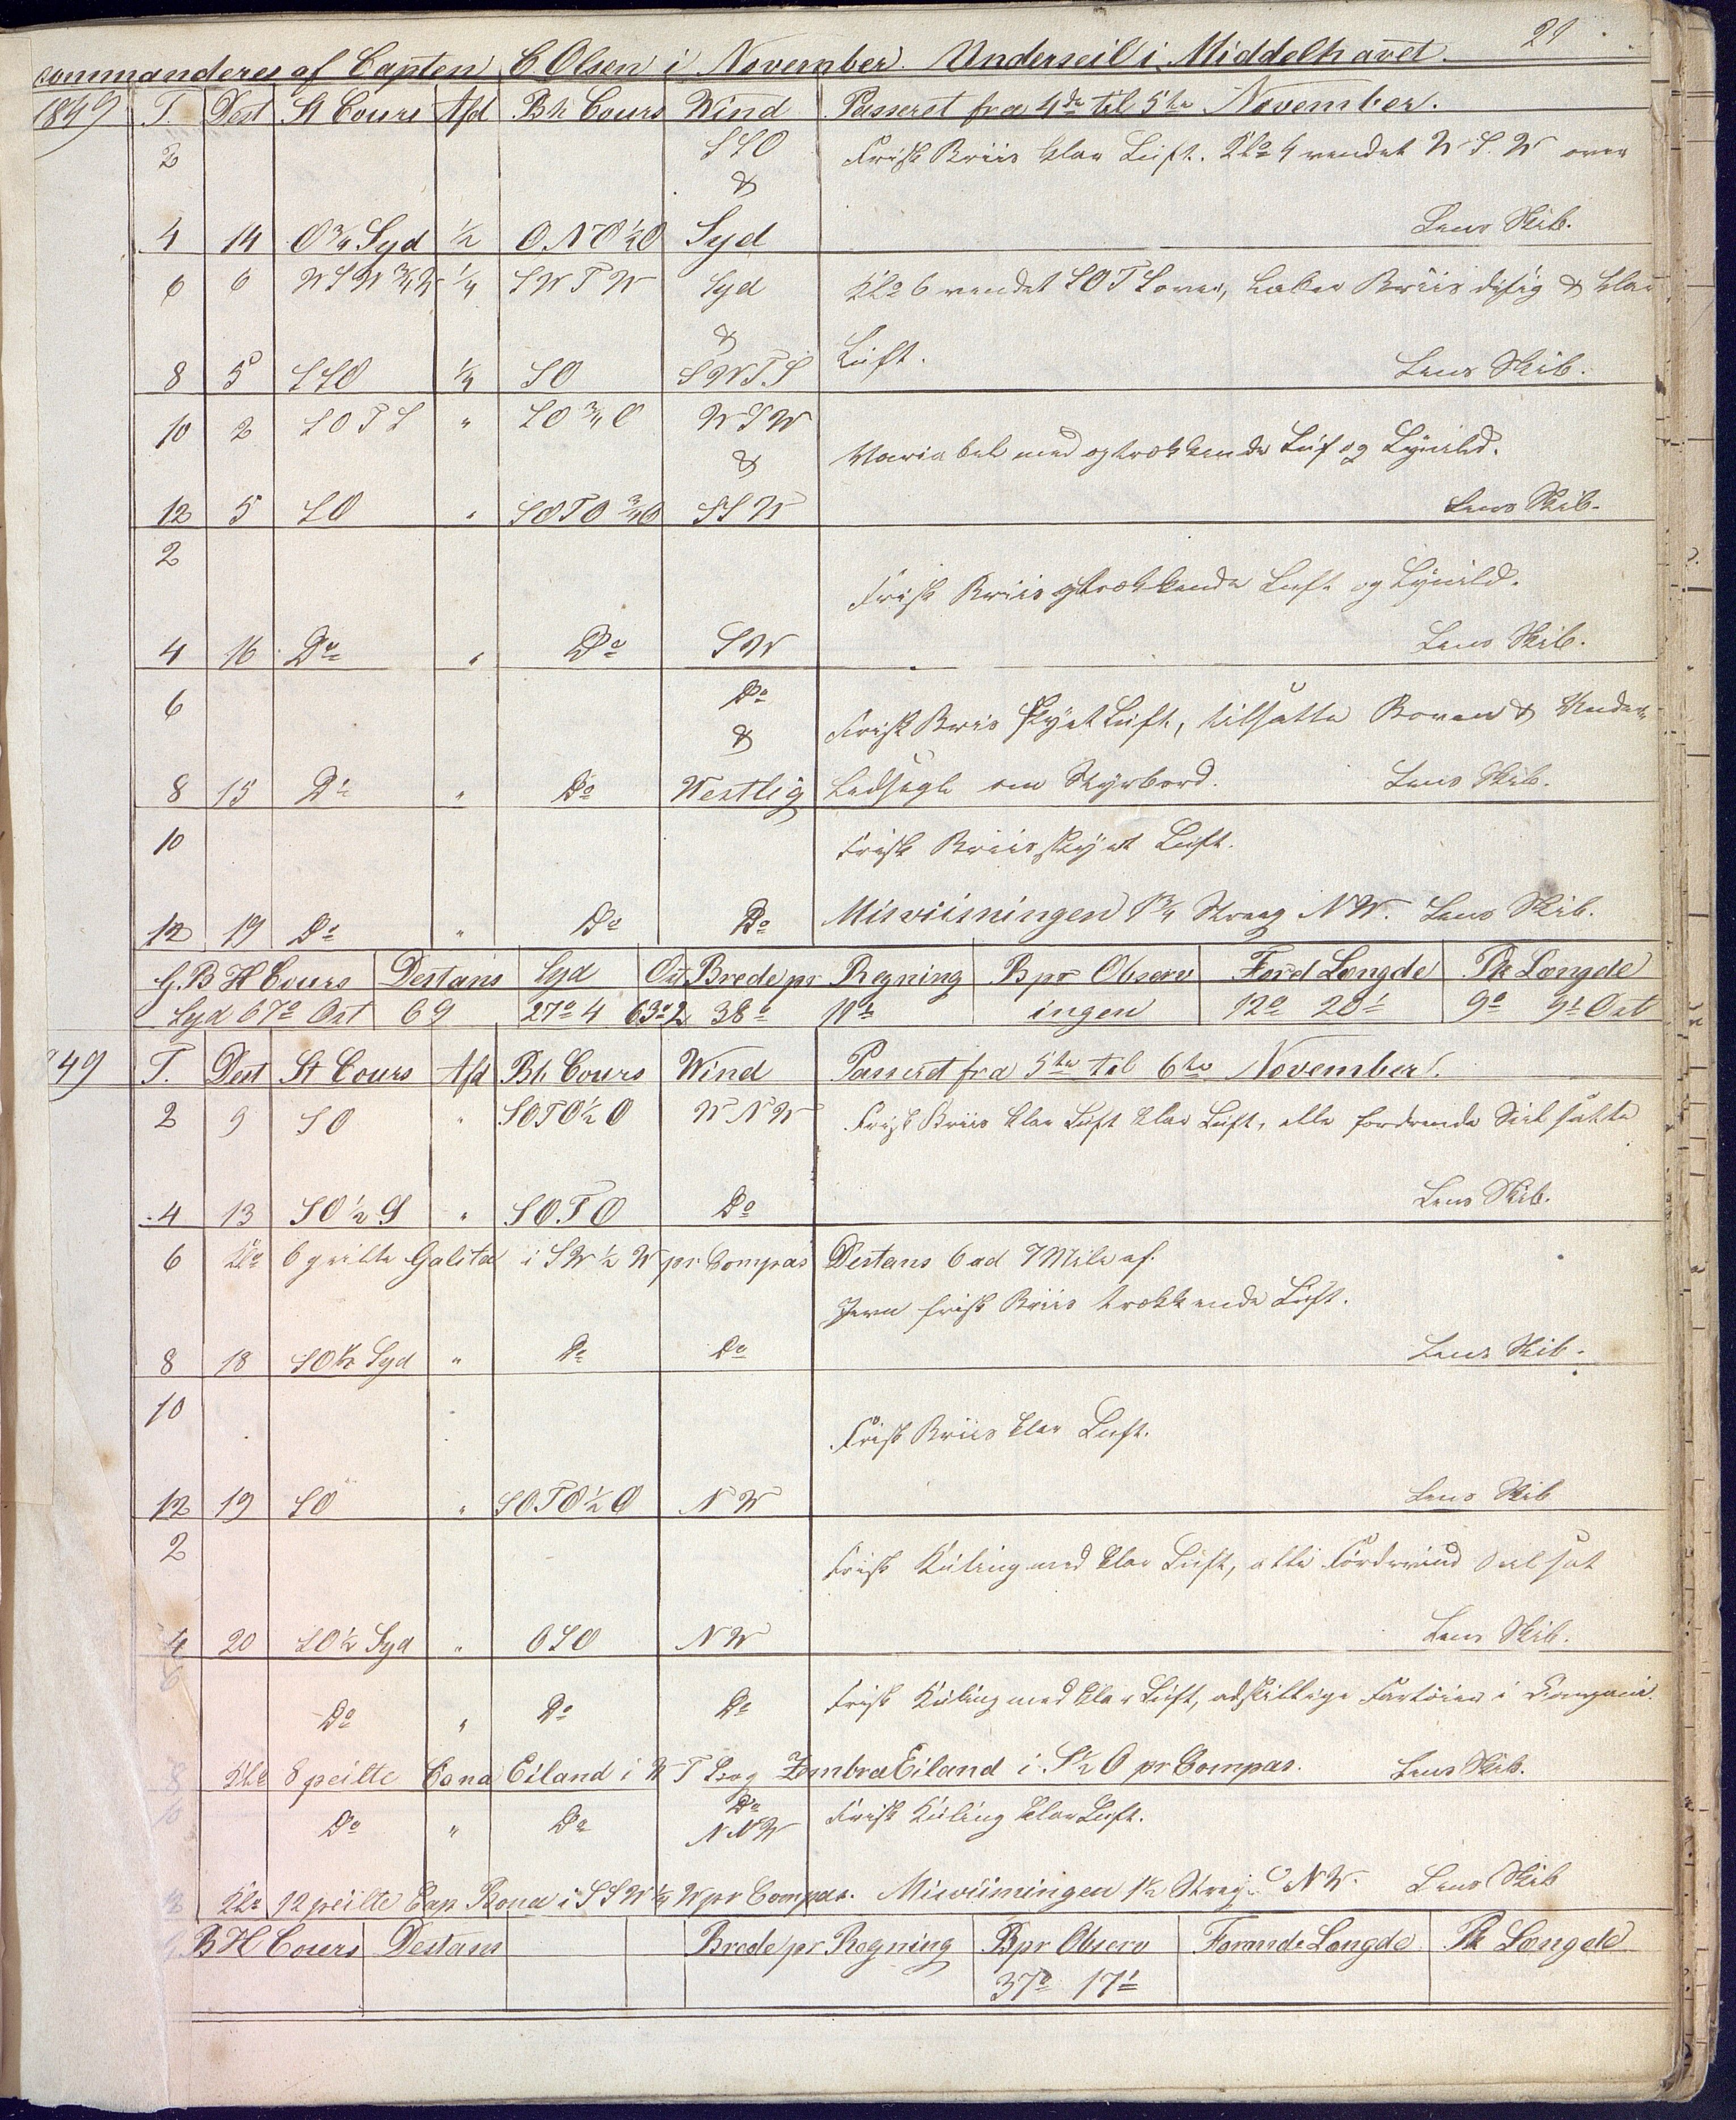 21
commanderes af Capten C. Olsen i November. Underseil i Middelhavet.
1849 T. Dest St Cours Afd Bh Cours Wind Passeret fra 4de til 5te November.
2 SSO Frisk Briis klar Luft. Klo 4 vendet W.S.W over
&
4 14 O 3/4 Syd 1/2 ONO 1/2 O Syd Lens Skib.
6 6 WSW 3/4 W 1/4 SWTW Syd Klo 6 vendet SOTS over, laber Briis disig & klar
&
8 5 SSO 1/4 SO SWT.S Luft. Lens Skib.
10 2 SOTS " SO 3/4 O WSW
& Variabel med optrækkende Luf og Lynild.
12 5 SO " SOTO 3/4 O SSW Lens Skib.
2
Frisk Briis optrækkende Luft og Lynild.
4 16 Do " Do SW Lens Skib.
6 Do
& Frisk Bris skyet Luft, tilsatte Boven & Under
8 15 Do " Do Westlig Ledsegl om Styrbord. Lens Skib.
10 Frisk Briis skyet Luft.
12 19 Do " Do Do Misviisningen 1 3/4 Streg NW. Lens Skib.
G.B H Cours Destans Syd Ost Brede pr Regning B pr Observ Forand Længde Pk Længde
Syd 67° Ost 69 27° 4 63° 2 38° 11' ingen 12° 20' 9° 9' Ost
49 T. Dest St Cours Afd Bh Cours Wind Passeret fra 5te til 6te November.
2 9 SO " SOTO 1/2 O WNW Frisk Briis klar Luft klar Luft, alle fordrende Seil satte
4 13 SO 1/2 S " SOTO Do Lens Skib.
6 Klo 6 peilte Galita i SW 1/2 W pr Compas Destans 6 ad 7 Mile af.
Jevn frisk Briis trækkende Luft.
8 18 SO 1/2 Syd " Do Do Lens Skib.
10
Frisk Briis klar Luft.
12 19 SO " SOTO 1/2 O NW Lens Skib
2
Frisk Kuling med klar Luft, alle Fordrend Seil sat
4 20 SO 1/2 Syd " OSO NW Lens Skib.
6
Do " Do Do Frisk Kuling med klar Luft, adskillige Fartøier i Compani.
8 Klo 8 peilte Cana Eiland i WTS og Zembra Eiland i S 1/2 O pr Compas. Lens Skib.
10 Do
Do " Do NNW Frisk Kuling klar Luft.
12 Klo 12 peilte Cap Bona i SSW 1/4 W pr Compas. Misviisningen 1 1/2 Streg NW. Lens Skib
G.B H Cours Destans Brede pr Regning B pr Observ Forande Længde Pk Længde
37° 17'